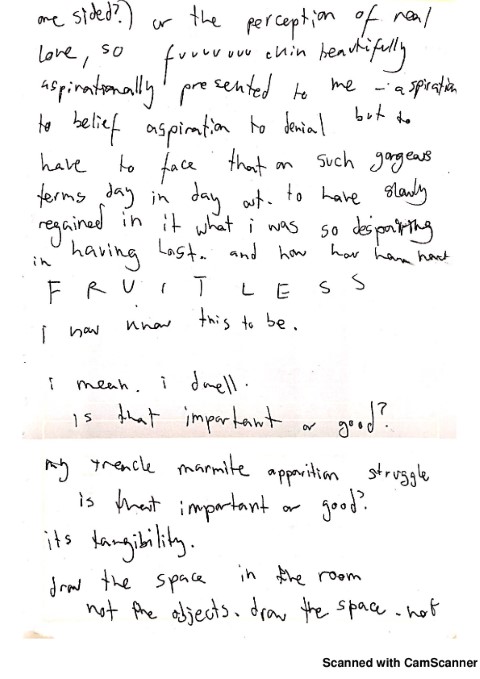 one sided?) or the perception of real
love, so fuuuuuuu chin beautifully
aspirationally presented to me - aspiration
to belief aspiration to denial but to
have to face that on such gorgeous
terms day in day out. to have slowly
regained in it what i was so despairing
in having lost. and how how
F R U I T L E S S
i now know this to be.
i mean. i dwell.
is that important or good?
my treacle marmite apparition struggle
is that important or good?
its tangibility.
draw the space in the room
not the objects. draw the space. not
Scanned with CamScanner